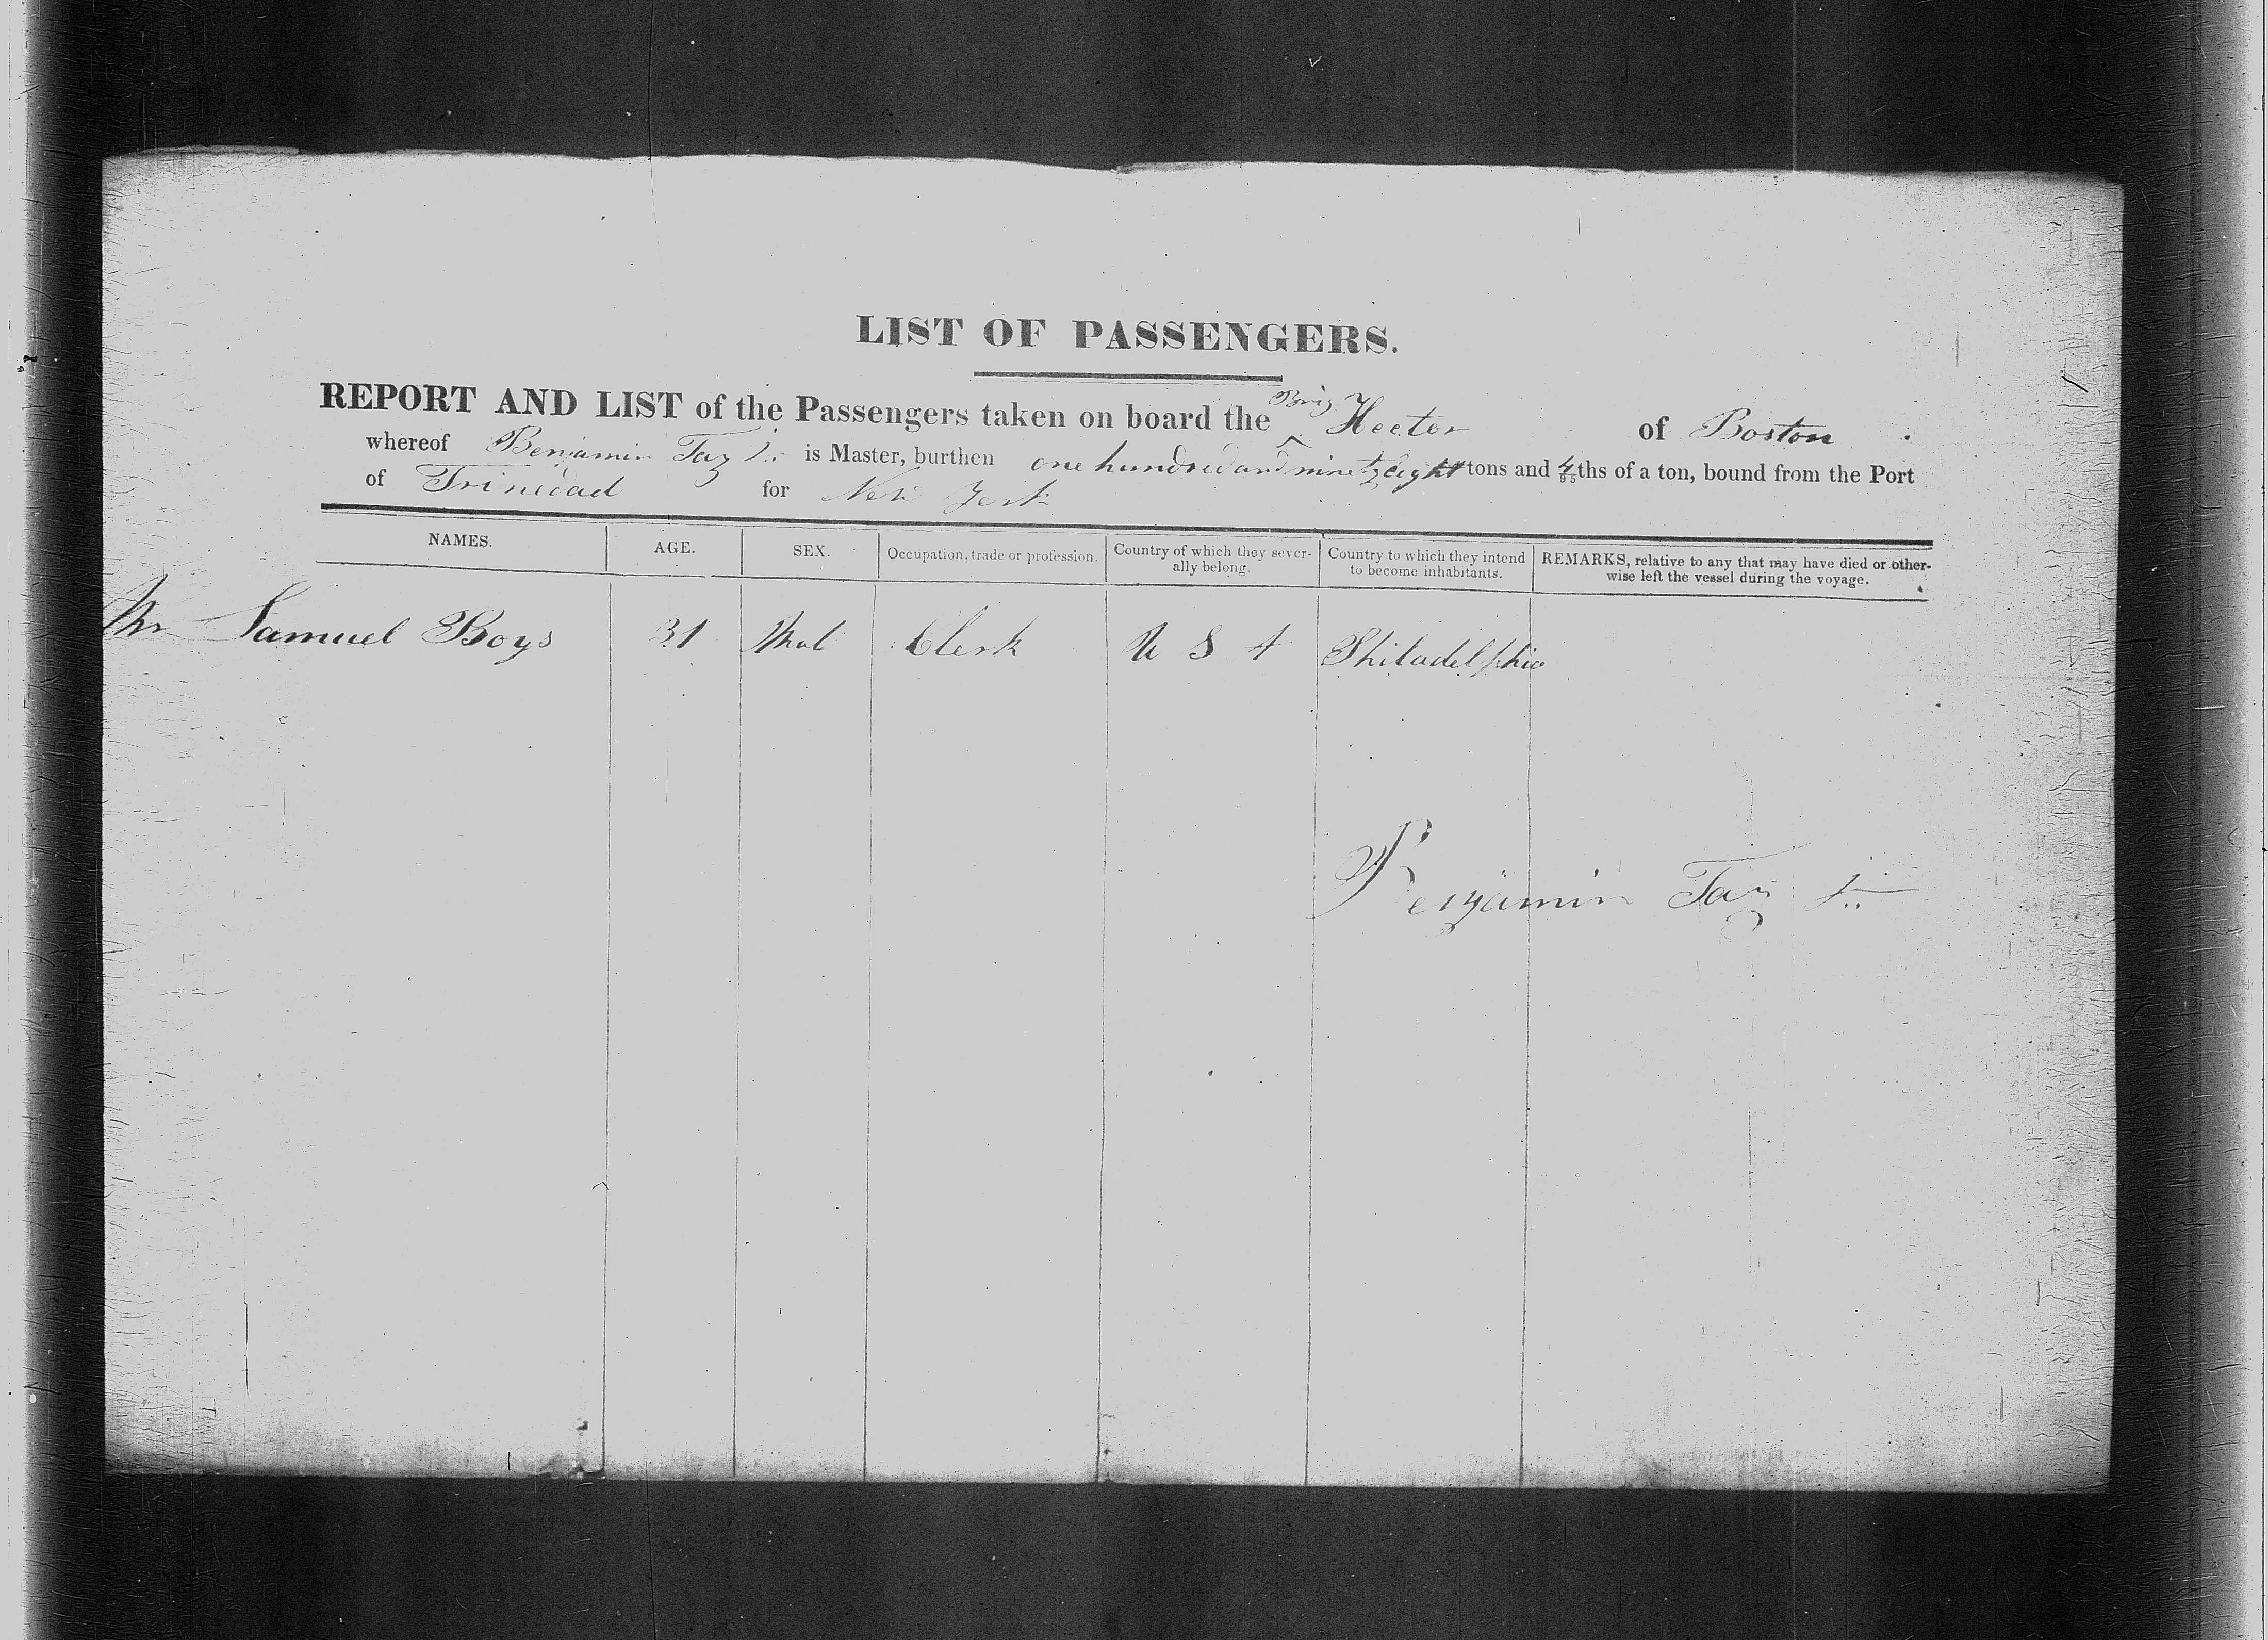 LIST OF PASSENGERS.
Brig
REPORT AND LIST of the Passengers taken on board the ^ Hector of Boston .
whereof Benjamin Tay Jr. is Master, burthen one hundred and ninety eight tons and 4/95 ths of a ton, bound from the Port
of Trinidad for New York
NAMES. AGE. SEX. Occupation, trade or profession. Country of which they severally belong. Country to which they intend to become inhabitants. REMARKS, relative to any that may have died or otherwise left the vessel during the voyage.
Mr Samuel Boys 31 Mal Clerk U S A Philadelphia
Benjamin Tay Jr.